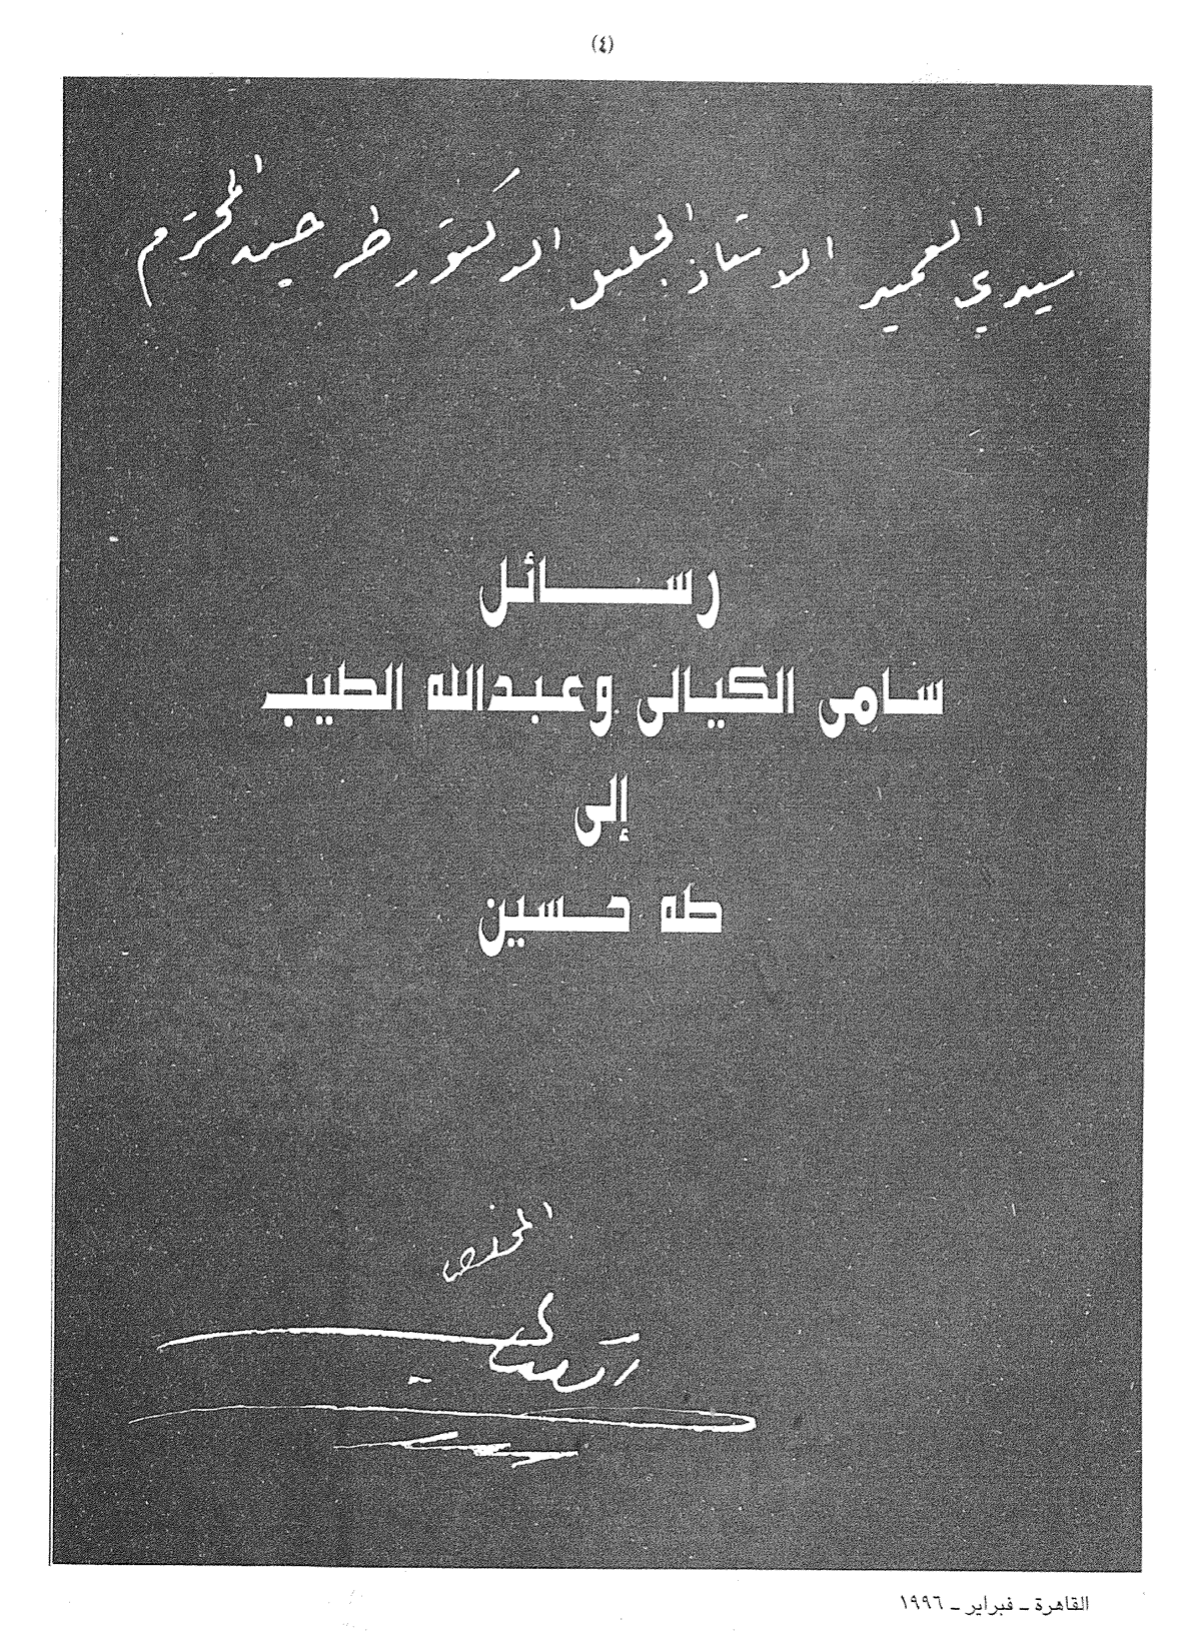 (٤)
سيدي العميد الاستاذ الجليل الدكتور طه حسين المحترم
رسائل
سامى الكيالى وعبدالله الطيب
إلى
طه حسين
المخلص
القاهرة ـ فبراير ـ ١٩٩٦